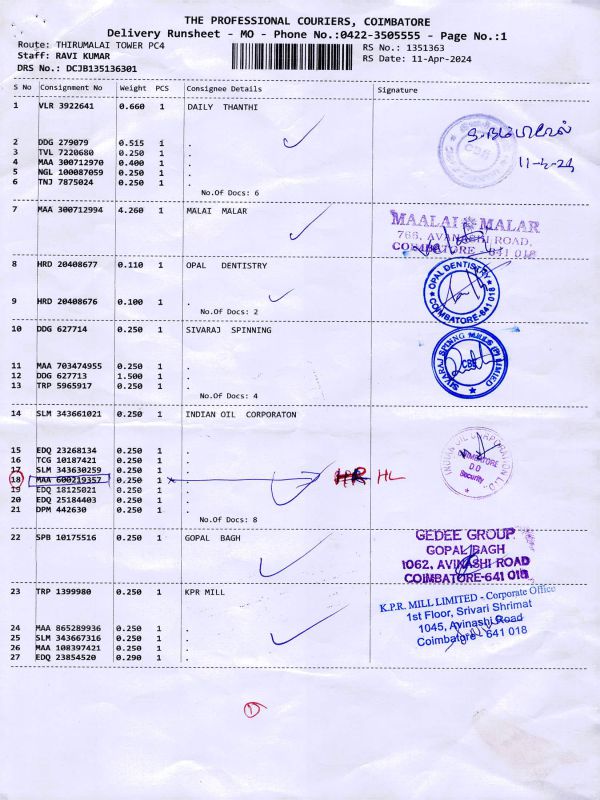 THE PROFESSIONAL COURIERS, COIMBATORE
Delivery Runsheet - MO - Phone No.:0422-3505555 - Page No.:1
Route: THIRUMALAI TOWER PC4
RS No.: 1351363
Staff: RAVI KUMAR
RS Date: 11-Apr-2024
DRS No.: DCJB135136301
S No Consignment No Weight PCS Consignee Details Signature
1 VLR 3922641 0.660 1 DAILY THANTHI
2 DDG 279079 0.515 1 .
3 TVL 7220680 0.250 1 .
4 MAA 300712970 0.400 1 .
5 NGL 100087059 0.250 1 .
6 TNJ 7875024 0.250 1 .
No.Of Docs: 6
11-4-24
7 MAA 300712994 4.260 1 MALAI MALAR
MAALAI MALAR
766, AVANASHI ROAD,
COIMBATORE - 641 018
8 HRD 20408677 0.110 1 OPAL DENTISTRY
9 HRD 20408676 0.100 1 .
No.Of Docs: 2
OPAL DENTISTRY
COIMBATORE-641 018
10 DDG 627714 0.250 1 SIVARAJ SPINNING
11 MAA 703474955 0.250 1 .
12 DDG 627713 1.500 1 .
13 TRP 5965917 0.250 1 .
No.Of Docs: 4
SIVARAJ SPINNING MILLS (P) LIMITED
CBE
14 SLM 343661021 0.250 1 INDIAN OIL CORPORATON
15 EDQ 23268134 0.250 1 .
16 TCG 10187421 0.250 1 .
17 SLM 343630259 0.250 1 .
18 MAA 600219357 0.250 1 . HL
19 EDQ 18125021 0.250 1 .
20 EDQ 25184403 0.250 1 .
21 DPM 442630 0.250 1 .
No.Of Docs: 8
INDIAN OIL CORPORATION LTD.
COIMBATORE
D.O
Security
22 SPB 10175516 0.250 1 GOPAL BAGH
GEDEE GROUP
GOPAL BAGH
1062, AVINASHI ROAD
COIMBATORE-641 018
23 TRP 1399980 0.250 1 KPR MILL
24 MAA 865289936 0.250 1 .
25 SLM 343667316 0.250 1 .
26 MAA 108397421 0.250 1 .
27 EDQ 23854520 0.290 1 .
K.P.R. MILL LIMITED - Corporate Office
1st Floor, Srivari Shrimat
1045, Avinashi Road
Coimbatore - 641 018
1